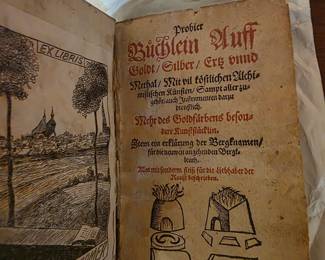 EX LIBRIS
Probier
Büchlein Auff
Goldt/ Silber/ Ertz vnnd
Methal/ Mit vil köstlichen Alchi-
mistischen Künsten/ Sampt aller zu-
gehör auch Instrumenten darzu
dienstlich.
Mehr des Goldfärbens beson-
dere Kunststücklin.
Item ein erklärung der Bergknamen/
für die newen an gehenden Bergk-
leuth.
Mit sonderm fleiß für die liebhaber der
Kunst beschrieben.